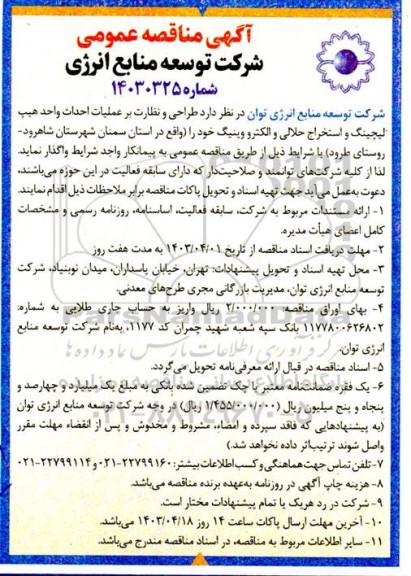 آگهی مناقصه عمومی
شرکت توسعه منابع انرژی
شماره ۱۴۰۳۰۳۲۵
شرکت توسعه منابع انرژی توان در نظر دارد طراحی و نظارت بر عملیات احداث واحد هیپ
لیچینگ و استخراج حلالی و الکترو وینینگ خود را (واقع در استان سمنان شهرستان شاهرود-
روستای طرود) با شرایط ذیل از طریق مناقصه عمومی به پیمانکار واجد شرایط واگذار نماید.
لذا از کلیه شرکت‌های توانمند و صلاحیت‌دار که دارای سابقه فعالیت در این حوزه می‌باشند،
دعوت به‌عمل می‌آید جهت تهیه اسناد و تحویل پاکات مناقصه برابر ملاحظات ذیل اقدام نمایند.
۱- ارائه مستندات مربوط به شرکت، سابقه فعالیت، اساسنامه، روزنامه رسمی و مشخصات
کامل اعضای هیأت مدیره.
۲- مهلت دریافت اسناد مناقصه از تاریخ ۱۴۰۳/۰۴/۰۱ به مدت هفت روز
۳- محل تهیه اسناد و تحویل پیشنهادات: تهران، خیابان پاسداران، میدان نوبنیاد، شرکت
توسعه منابع انرژی توان، مدیریت بازرگانی مجری طرح‌های معدنی.
۴- بهای اوراق مناقصه ۲/۰۰۰/۰۰۰ ریال واریز به حساب جاری طلایی به شماره:
۱۱۷۷۸۰۰۶۲۶۸۰۲ بانک سپه شعبه شهید چمران کد ۱۱۷۷، به‌نام شرکت توسعه منابع
انرژی توان.
۵- اسناد مناقصه در قبال ارائه معرفی‌نامه تحویل می‌گردد.
۶- یک فقره ضمانتنامه معتبر یا چک تضمین شده بانکی به مبلغ یک میلیارد و چهارصد و
پنجاه و پنج میلیون ریال (۱/۴۵۵/۰۰۰/۰۰۰ ریال) در وجه شرکت توسعه منابع انرژی توان
(به پیشنهادهایی که فاقد سپرده و امضاء، مشروط و مخدوش و پس از انقضاء مهلت مقرر
واصل شوند ترتیب‌اثر داده نخواهد شد.)
۷- تلفن تماس جهت هماهنگی و کسب اطلاعات بیشتر: ۲۲۷۹۹۱۶۰-۰۲۱ و ۲۲۷۹۹۱۱۴-۰۲۱
۸- هزینه چاپ آگهی در روزنامه به‌عهده برنده مناقصه می‌باشد.
۹- شرکت در رد هریک یا تمام پیشنهادات مختار است.
۱۰- آخرین مهلت ارسال پاکات ساعت ۱۴ روز ۱۴۰۳/۰۴/۱۸ می‌باشد.
۱۱- سایر اطلاعات مربوط به مناقصه، در اسناد مناقصه مندرج می‌باشد.